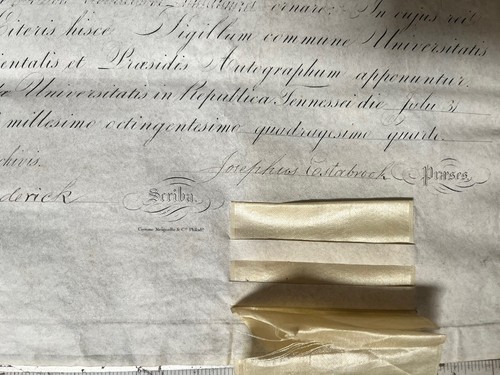 ornare: In cujus rei
literis hisce Sigillum commune Universitatis
ientalis et Præsidis Autographum apponuntur.
Universitatis in Republica Tennessei die Julii 31
millesimo octingentesimo quadragesimo quarto.
chivis.
Josephus Estabrook Præses.
derick Scriba.